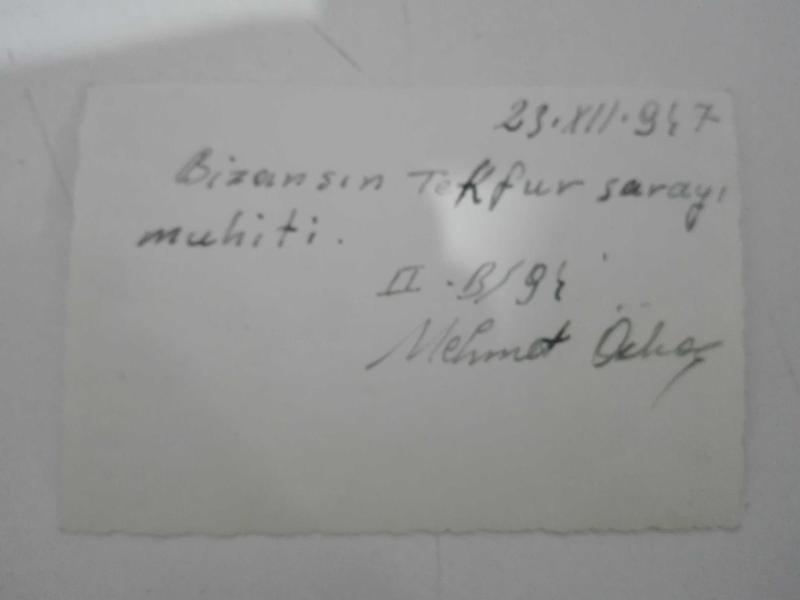 23.XII.947
Bizansın Tekfur sarayı
muhiti.
II.B/94
Mehmet